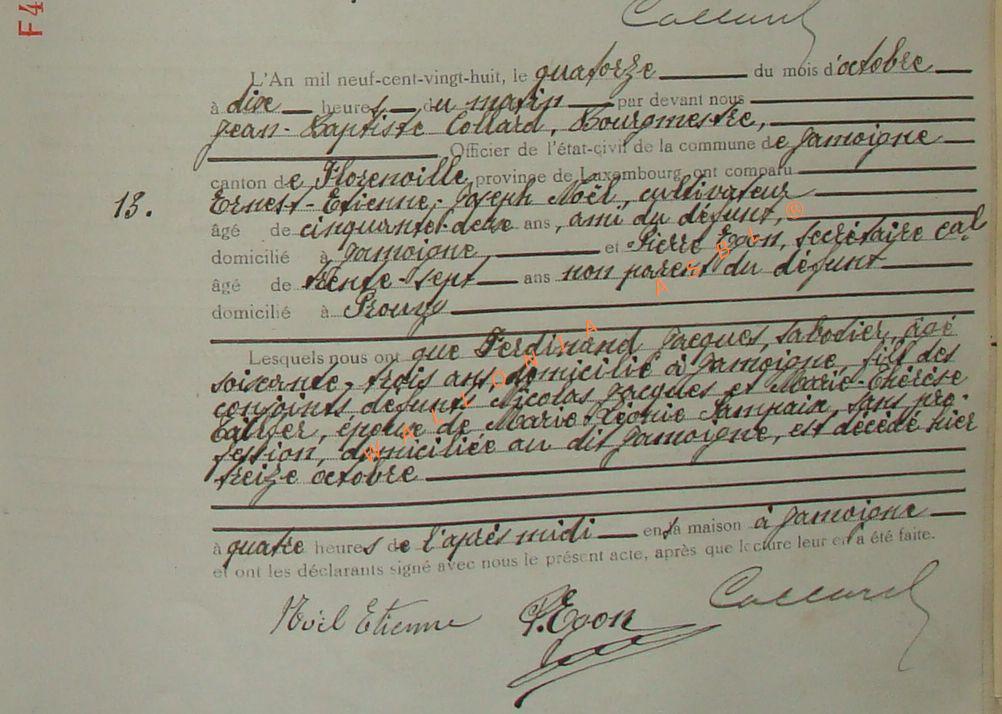 F4
Collard
L'An mil neuf-cent-vingt-huit, le quatorze du mois d'octobre
à dix heures du matin par devant nous
Jean-Baptiste Collard, Bourgmestre,
Officier de l'état-civil de la commune de Jamoigne
canton de Florenville province de Luxembourg ont comparu
13. Ernest-Etienne-Joseph Noël, cultivateur
âgé de cinquante-deux ans, ami du défunt,
domicilié à Jamoigne, et Pierre Egon, secrétaire cal
âgé de trente-sept ans non parent du défunt
domicilié à Prouzy
Lesquels nous ont que Ferdinand Jacques, sabotier, âgé
soixante-trois ans domicilié à Jamoigne, fils des
conjoints défunts Nicolas Jacques et Marie-Thérèse
époux de Marie-Léonie sans pro-
fession, domiciliée au dit Jamoigne, est décédé hier
treize octobre
à quatre heures de l'après midi en sa maison à Jamoigne
et ont les déclarants signé avec nous le présent acte, après que lecture leur en a été faite.
Noël Etienne P. Egon Collard
WALLONIA ASBL ©